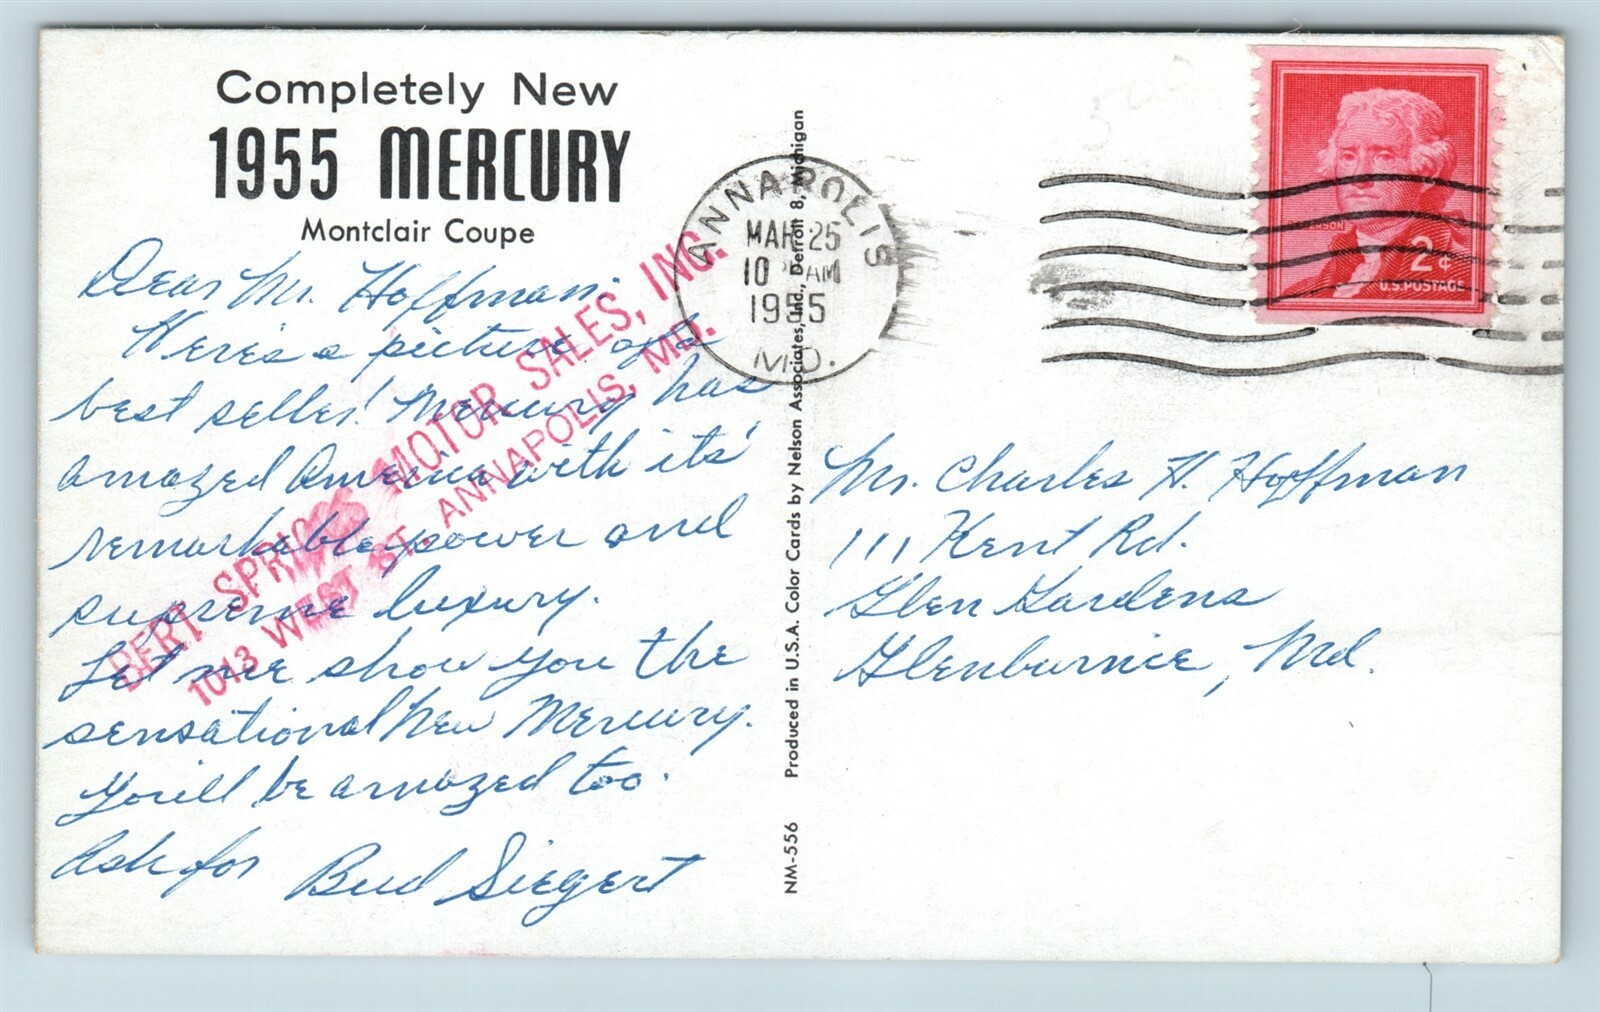 Completely New
1955 MERCURY
Montclair Coupe
Dear Mr. Hoffman.
Here's a picture of a
best seller! Mercury has
amazed America with its'
remarkable power and
supreme luxury.
Let me show you the
sensational New Mercury.
You'll be amazed too.
Ask for Bud Siegert
BERT SPRIGGS MOTOR SALES, INC.
1013 WEST ST. ANNAPOLIS, MD.
NM-556 Produced in U.S.A. Color Cards by Nelson Associates, Inc., Detroit 8, Michigan
ANNAPOLIS
MAR 25
10 AM
1955
MD.
JEFFERSON
2¢
U.S. POSTAGE
500
Mr. Charles H. Hoffman
111 Kent Rd.
Glen Gardens
Glenburnie, Md.